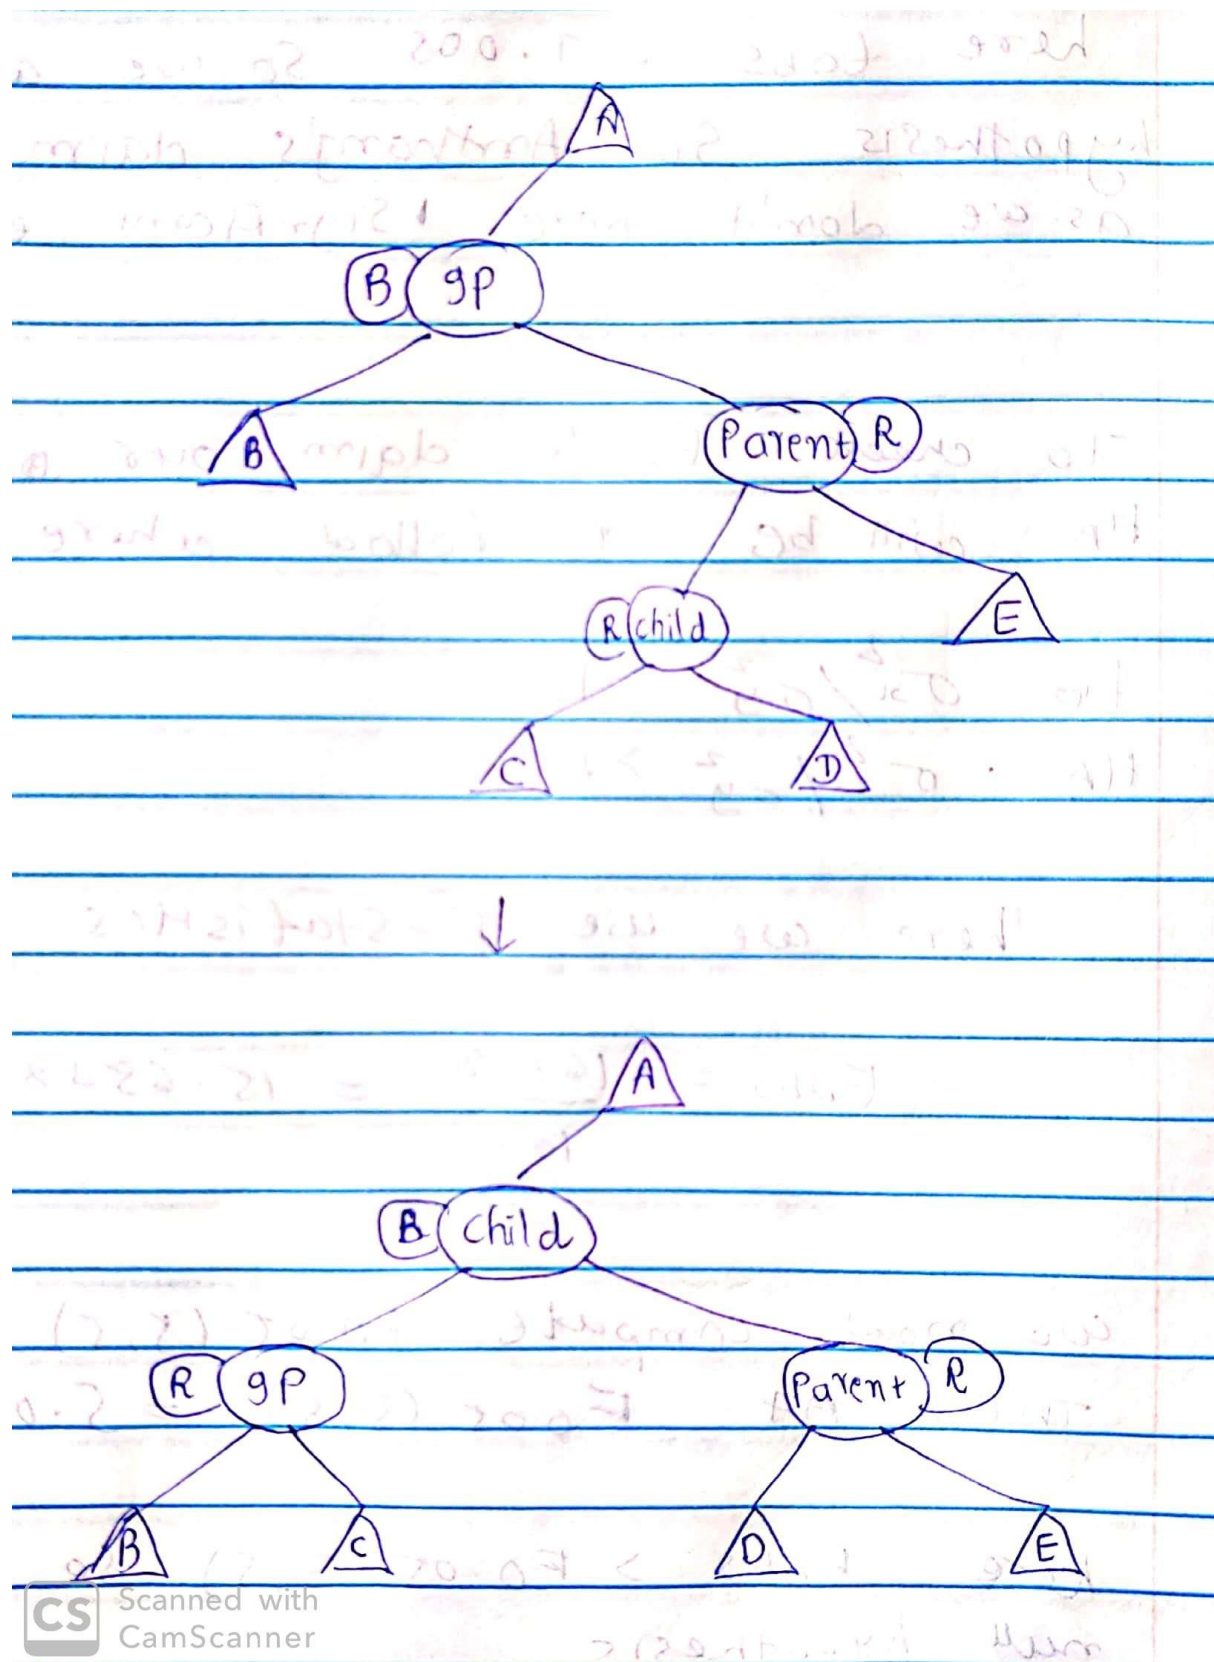 A
B gp
B
Parent R
R child
E
C D
↓
A
B Child
R gp Parent R
B C D E
CS Scanned with
CamScanner